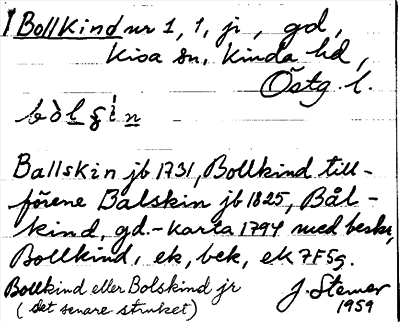 1 Bollkind nr 1, 1, jr, gd,
Kisa sn, Kinda hd,
Östg. l.
Ballskin jb 1731, Bollkind till-
förene Balskin jb 1825, Bål-
kind, gd.-karta 1794 med beskr,
Bollkind, ek, bek, ek 7F5g.
Bollkind eller Bolskind jr
(det senare struket)
J. Stemer
1959